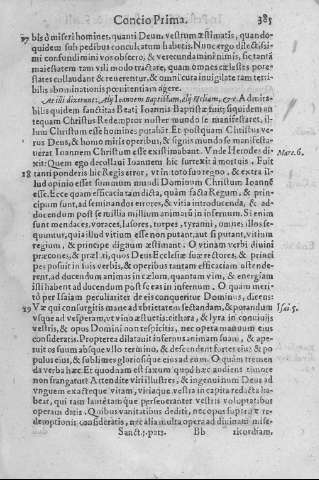 Concio Prima. 385
27 bis ô miseri homines, quanti Deum vestrum æstimatis, quando-
quidem sub pedibus conculcatum habetis. Nunc ergo dilectissi-
mi confundimini vos obsecro, & verecundamini nimis, si e tantâ
maiestatem tam vili modo tractate, quam omnes cælestes pote-
states collaudant & reuerentur, & omni cura inuigilate tam terri-
bilis abominationis pœnitentiam agere.
At illi dixerunt, Alij Ioannem Baptistam, alij Heliam, &c. Admira-
bilis quidem sancti Beati Ioannis Baptistæ fuit; siquidem an
tequam Christus Redemptor noster mundo se manifestaret, il-
lum Christum esse homines putabãt. Et postquam Christus ve-
rus Deus, & homo miris operibus, & signis mundo se manifesta-
uerat Ioannem Christum esse existimabant. Vnde Herodes di-
xit: Quem ego decollaui Ioannem hic surrexit à mortuis. Fuit Marc. 6.
28 tanti ponderis hic Regis error, vt in toto suo regno, & extra il-
lud opinio esset summum mundi Dominum Christum Ioannẽ
esse. Ecce quam efficacia tam dicta, quam facta Regum, & prin-
cipum sunt, ad seminandos errores, & vitia introducenda, & ad-
docendum post se millia millium animarũ in infernum. Si enim
sunt mendaces, voraces, lusores, turpes, tyranni, omnes illos se-
quuntur, quia illud vitium esse non putant, aut si putant, vitium
regium, & principe dignum æstimant. O vtinam verbi diuini
præcones, & prælati, quos Deus Ecclesiæ suæ rectores, & princi
pes posuit in suis verbis, & operibus tantam efficaciam ostende-
rent, ad ducendum animas in cælum, quantam vim, & energiam
isti habent ad ducendum post se eas in infernum. O quam meri-
tò per Isaiam peculiariter de eis conqueritur Dominus, dicens:
29 Væ qui consurgitis mane ad ebrietatem sectandam, & potandum Isai 5.
vsque ad vesperam, vt vino æstuetis, cithara, & lyra in conuiuijs
vestris, & opus Domini non respicitis, nec opera manuum eius
consideratis. Propterea dilatauit infernus animam suam, & ape-
ruit os suum absque vllo termino, & descendent fortes eius & po
pulus eius, & sublimes gloriosique eius ad eum. O quàm tremen
da verba hæc. Et quodnam est saxum quod hæc audiens timore
non frangatur? Attendite viri illustres, & ingenui num Deus ad
vnguem exacteque vitam, vitiaque vestra in capita redacta ha-
beat, qui tam lautè tamque perseueranter vestris voluptatibus
operam datis. Quibus vanitatibus dediti, nec opus supremæ re-
demptionis consideratis, nec alia multa opera ad diuinam mise-
Sanct. 3. pars. Bb ricordiam.